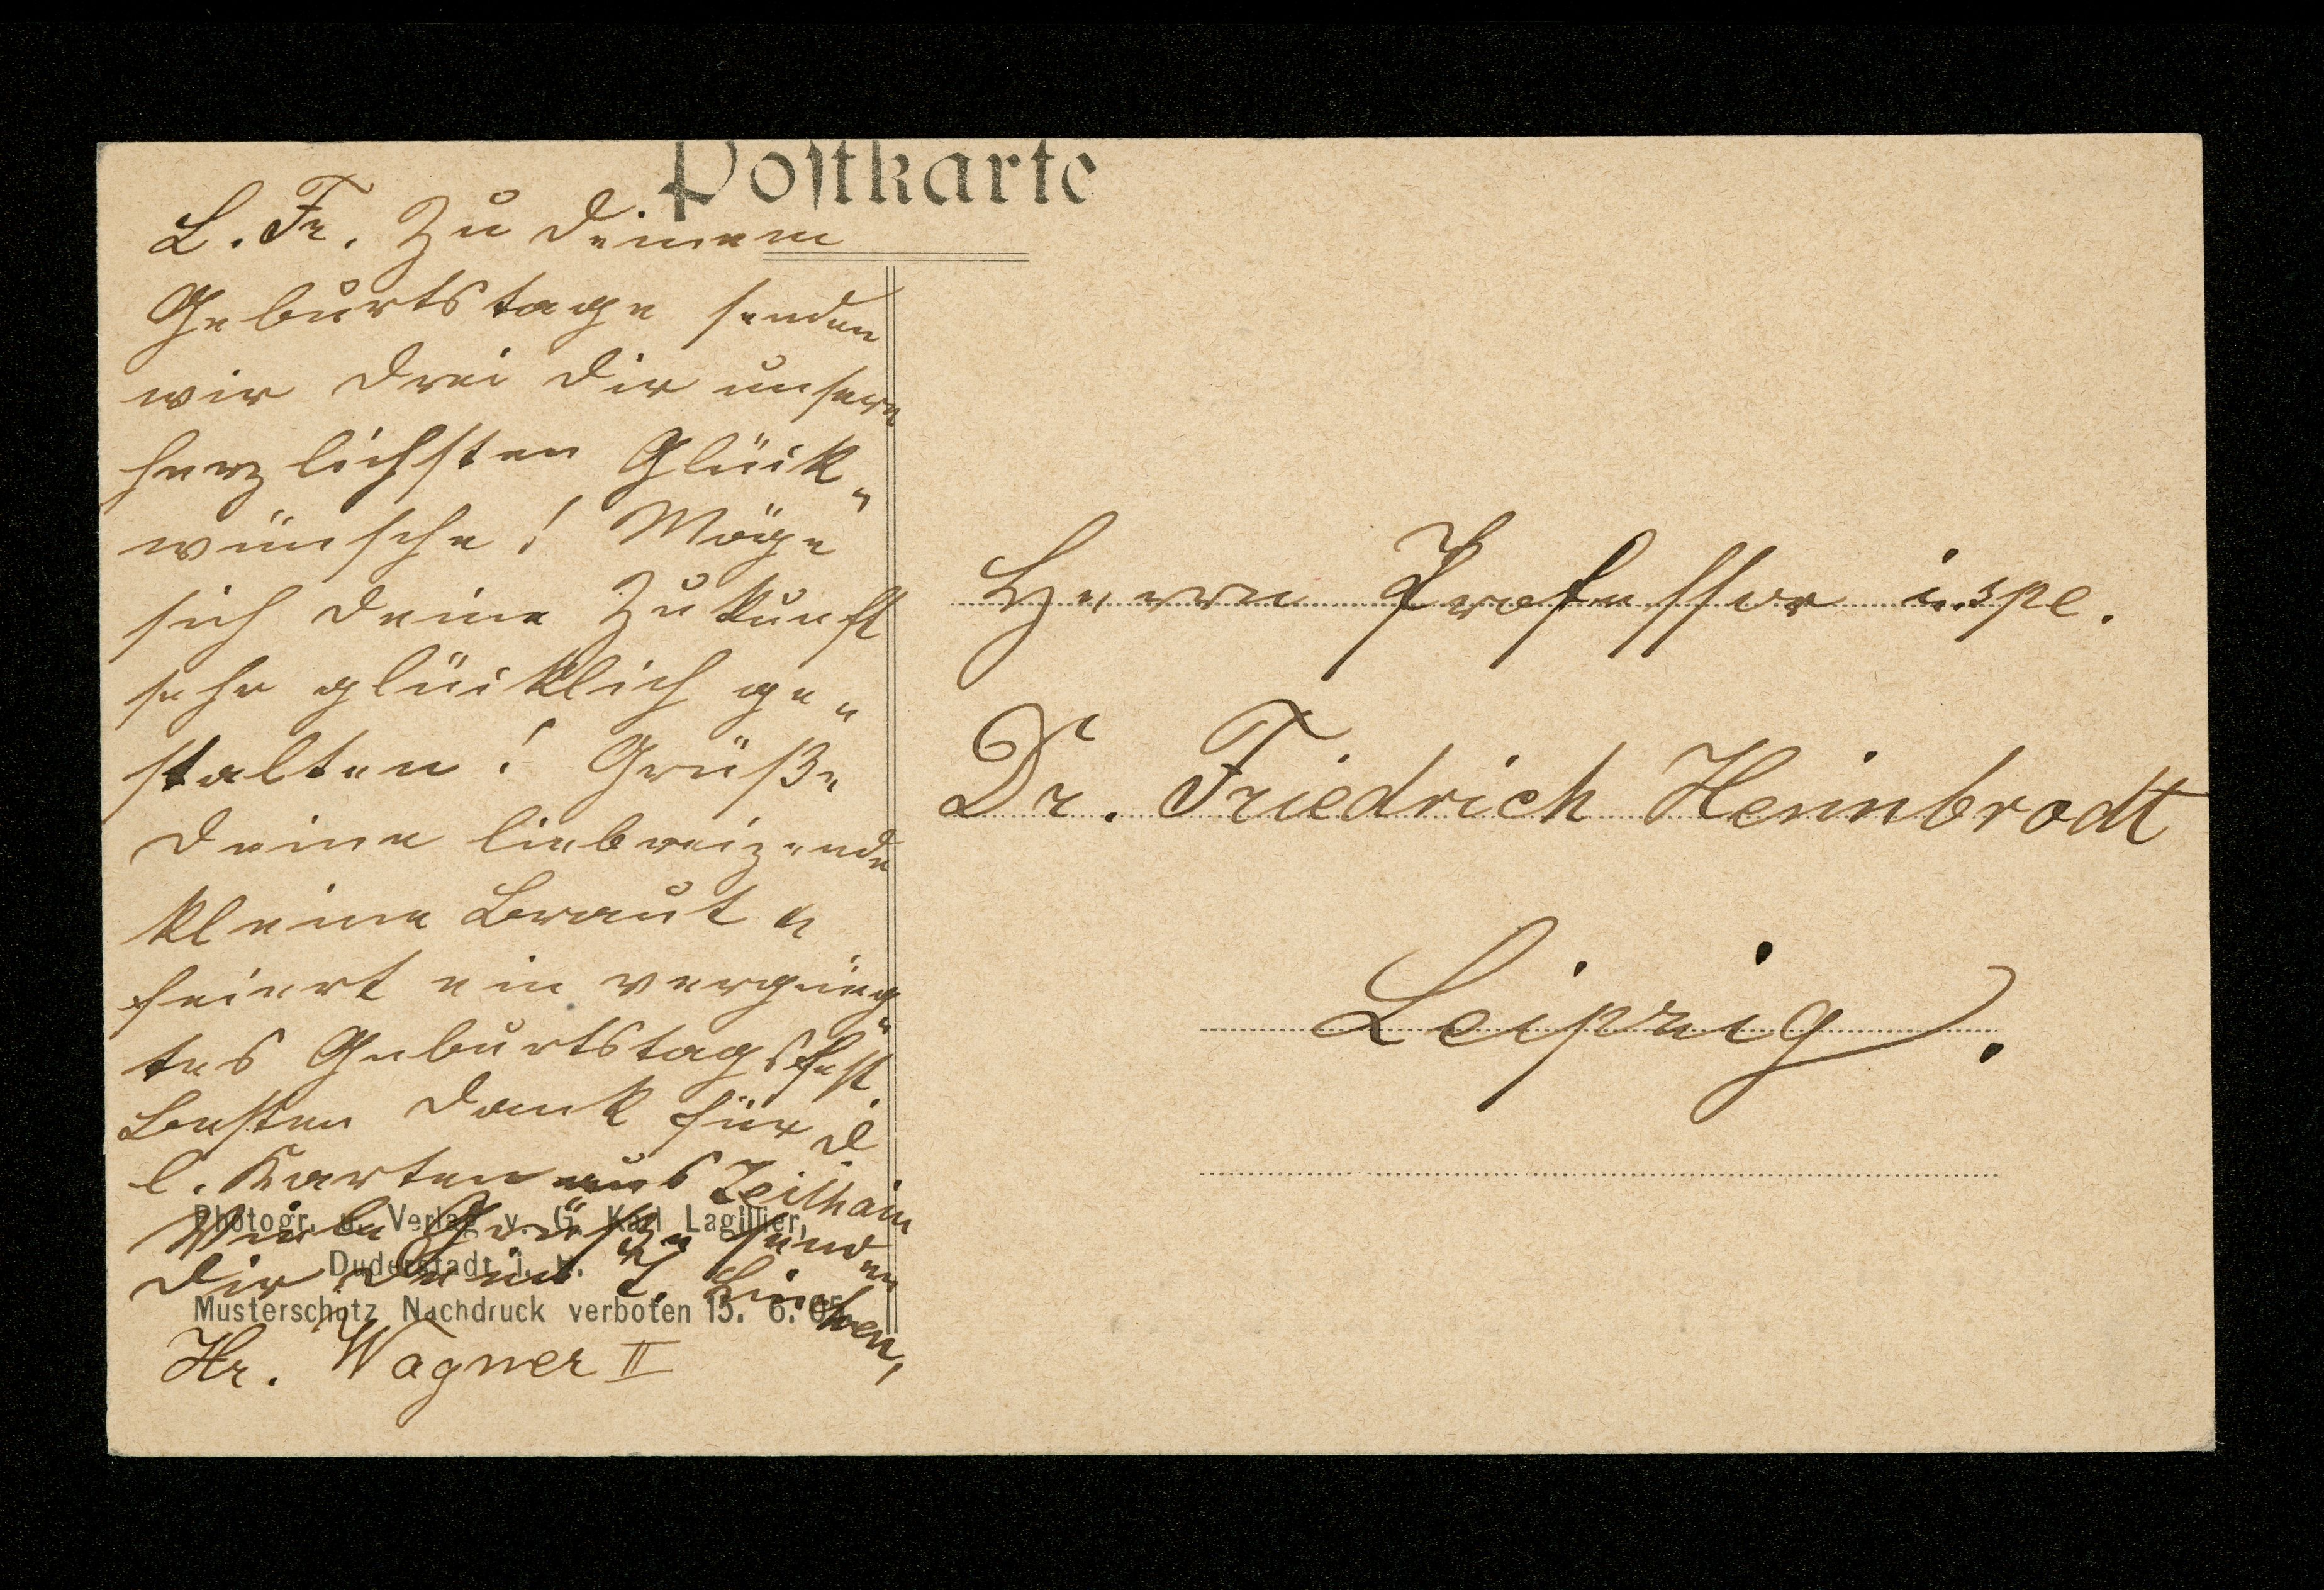 Postkarte
L. Fr. Zu Deinem
Geburtstage senden
wir drei Dir unsere
herzlichsten Glück-
wünsche! Möge
sich Deine Zukunft
sehr glücklich ge-
stalten! Grüße
Deine liebreizende
kleine Braut u
feiert ein vergnüg-
tes Geburtstagsfest.
Besten Dank für d.
l. Karten aus Zeithain
Viele Grüße senden
Dir Deine
Hr. Wagner II
Photogr. u. Verlag v. G. Karl Lagillier,
Duderstadt i. H.
Musterschutz Nachdruck verboten 15. 6. 05.
Herrn Professor i. spe.
Dr. Friedrich Heimbrodt
Leipzig.